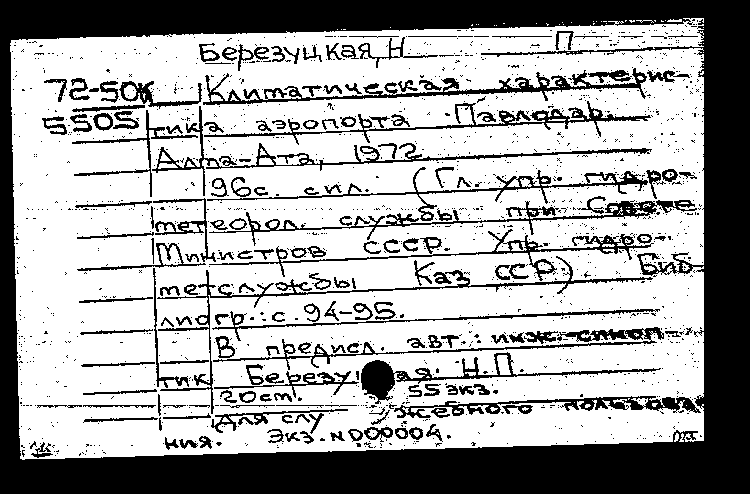 Березуцкая, Н П
72-50к Климатическая характерис-
5505 тика аэропорта Павлодар.
Алма-Ата, 1972
96с. с ил. (Гл. упр. гидро-
метеорол. службы при Совете
Министров СССР. Упр. гидро-
метслужбы Каз ССР). Биб-
лиогр.: с. 94-95.
В предисл. авт.: инж.-синоп-
тик Березу ая Н.П.
20см. 55 экз.
Для служебного пользова-
ния. Экз. №00004.